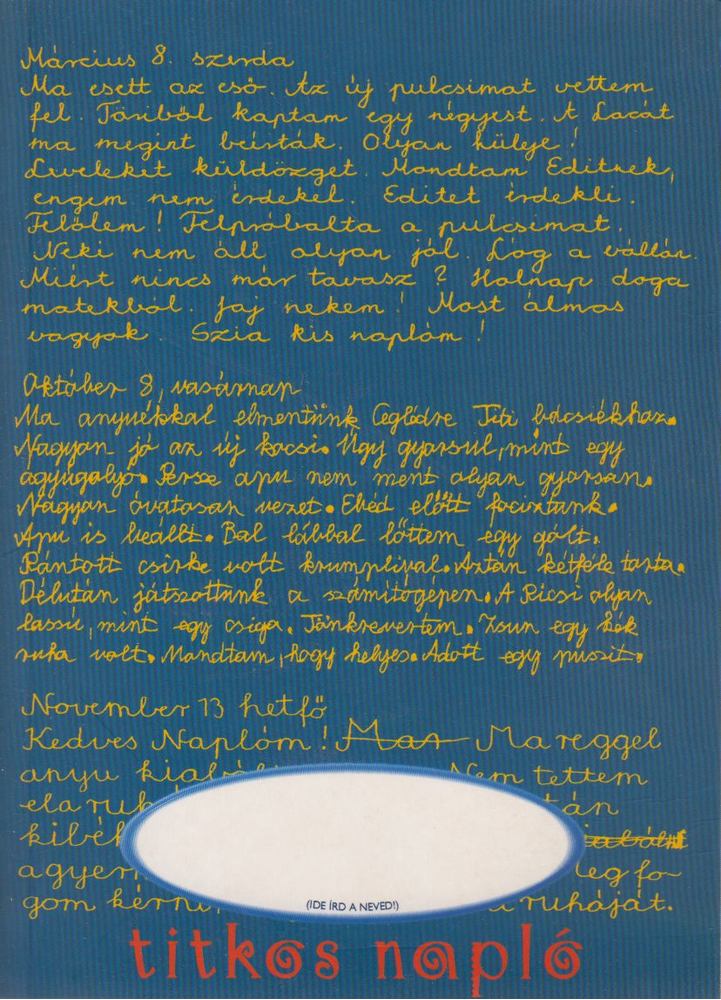 Március 8. szerda
Ma esett az eső. Az új pulcsimat vettem
fel. Töriből kaptam egy négyest. A Lacát
ma megint beírták. Olyan hülye!
Leveleket küldözget. Mondtam Editnek,
engem nem érdekel. Editet érdekli.
Felőlem! Felpróbálta a pulcsimat.
Neki nem áll olyan jól. Lóg a vállán.
Miért nincs már tavasz? Holnap doga
matekból. Jaj nekem! Most álmos
vagyok. Szia kis naplóm!
Október 8, vasárnap
Ma anyuékkal elmentünk Ceglédre Titi bácsiékhoz.
Nagyon jó az új kocsi. Úgy gyorsul, mint egy
ágyúgolyó. Persze apu nem ment olyan gyorsan.
Nagyon óvatosan vezet. Ebéd előtt fociztunk.
Apu is beállt. Bal lábbal lőttem egy gólt.
Rántott csirke volt krumplival. Aztán kétféle torta.
Délután játszottunk a számítógépen. A Ricsi olyan
lassú, mint egy csiga. Tönkrevertem. Zsun egy kék
ruha volt. Mondtam, hogy helyes. Adott egy puszit.
November 13 hetfő
Kedves Naplóm! Mar Ma reggel
anyu kiabál Nem tettem
el a ruh tán
kibék iabált
a gyer Meg fo-
gom kérni, a ruháját.
(IDE ÍRD A NEVED!)
titkos napló